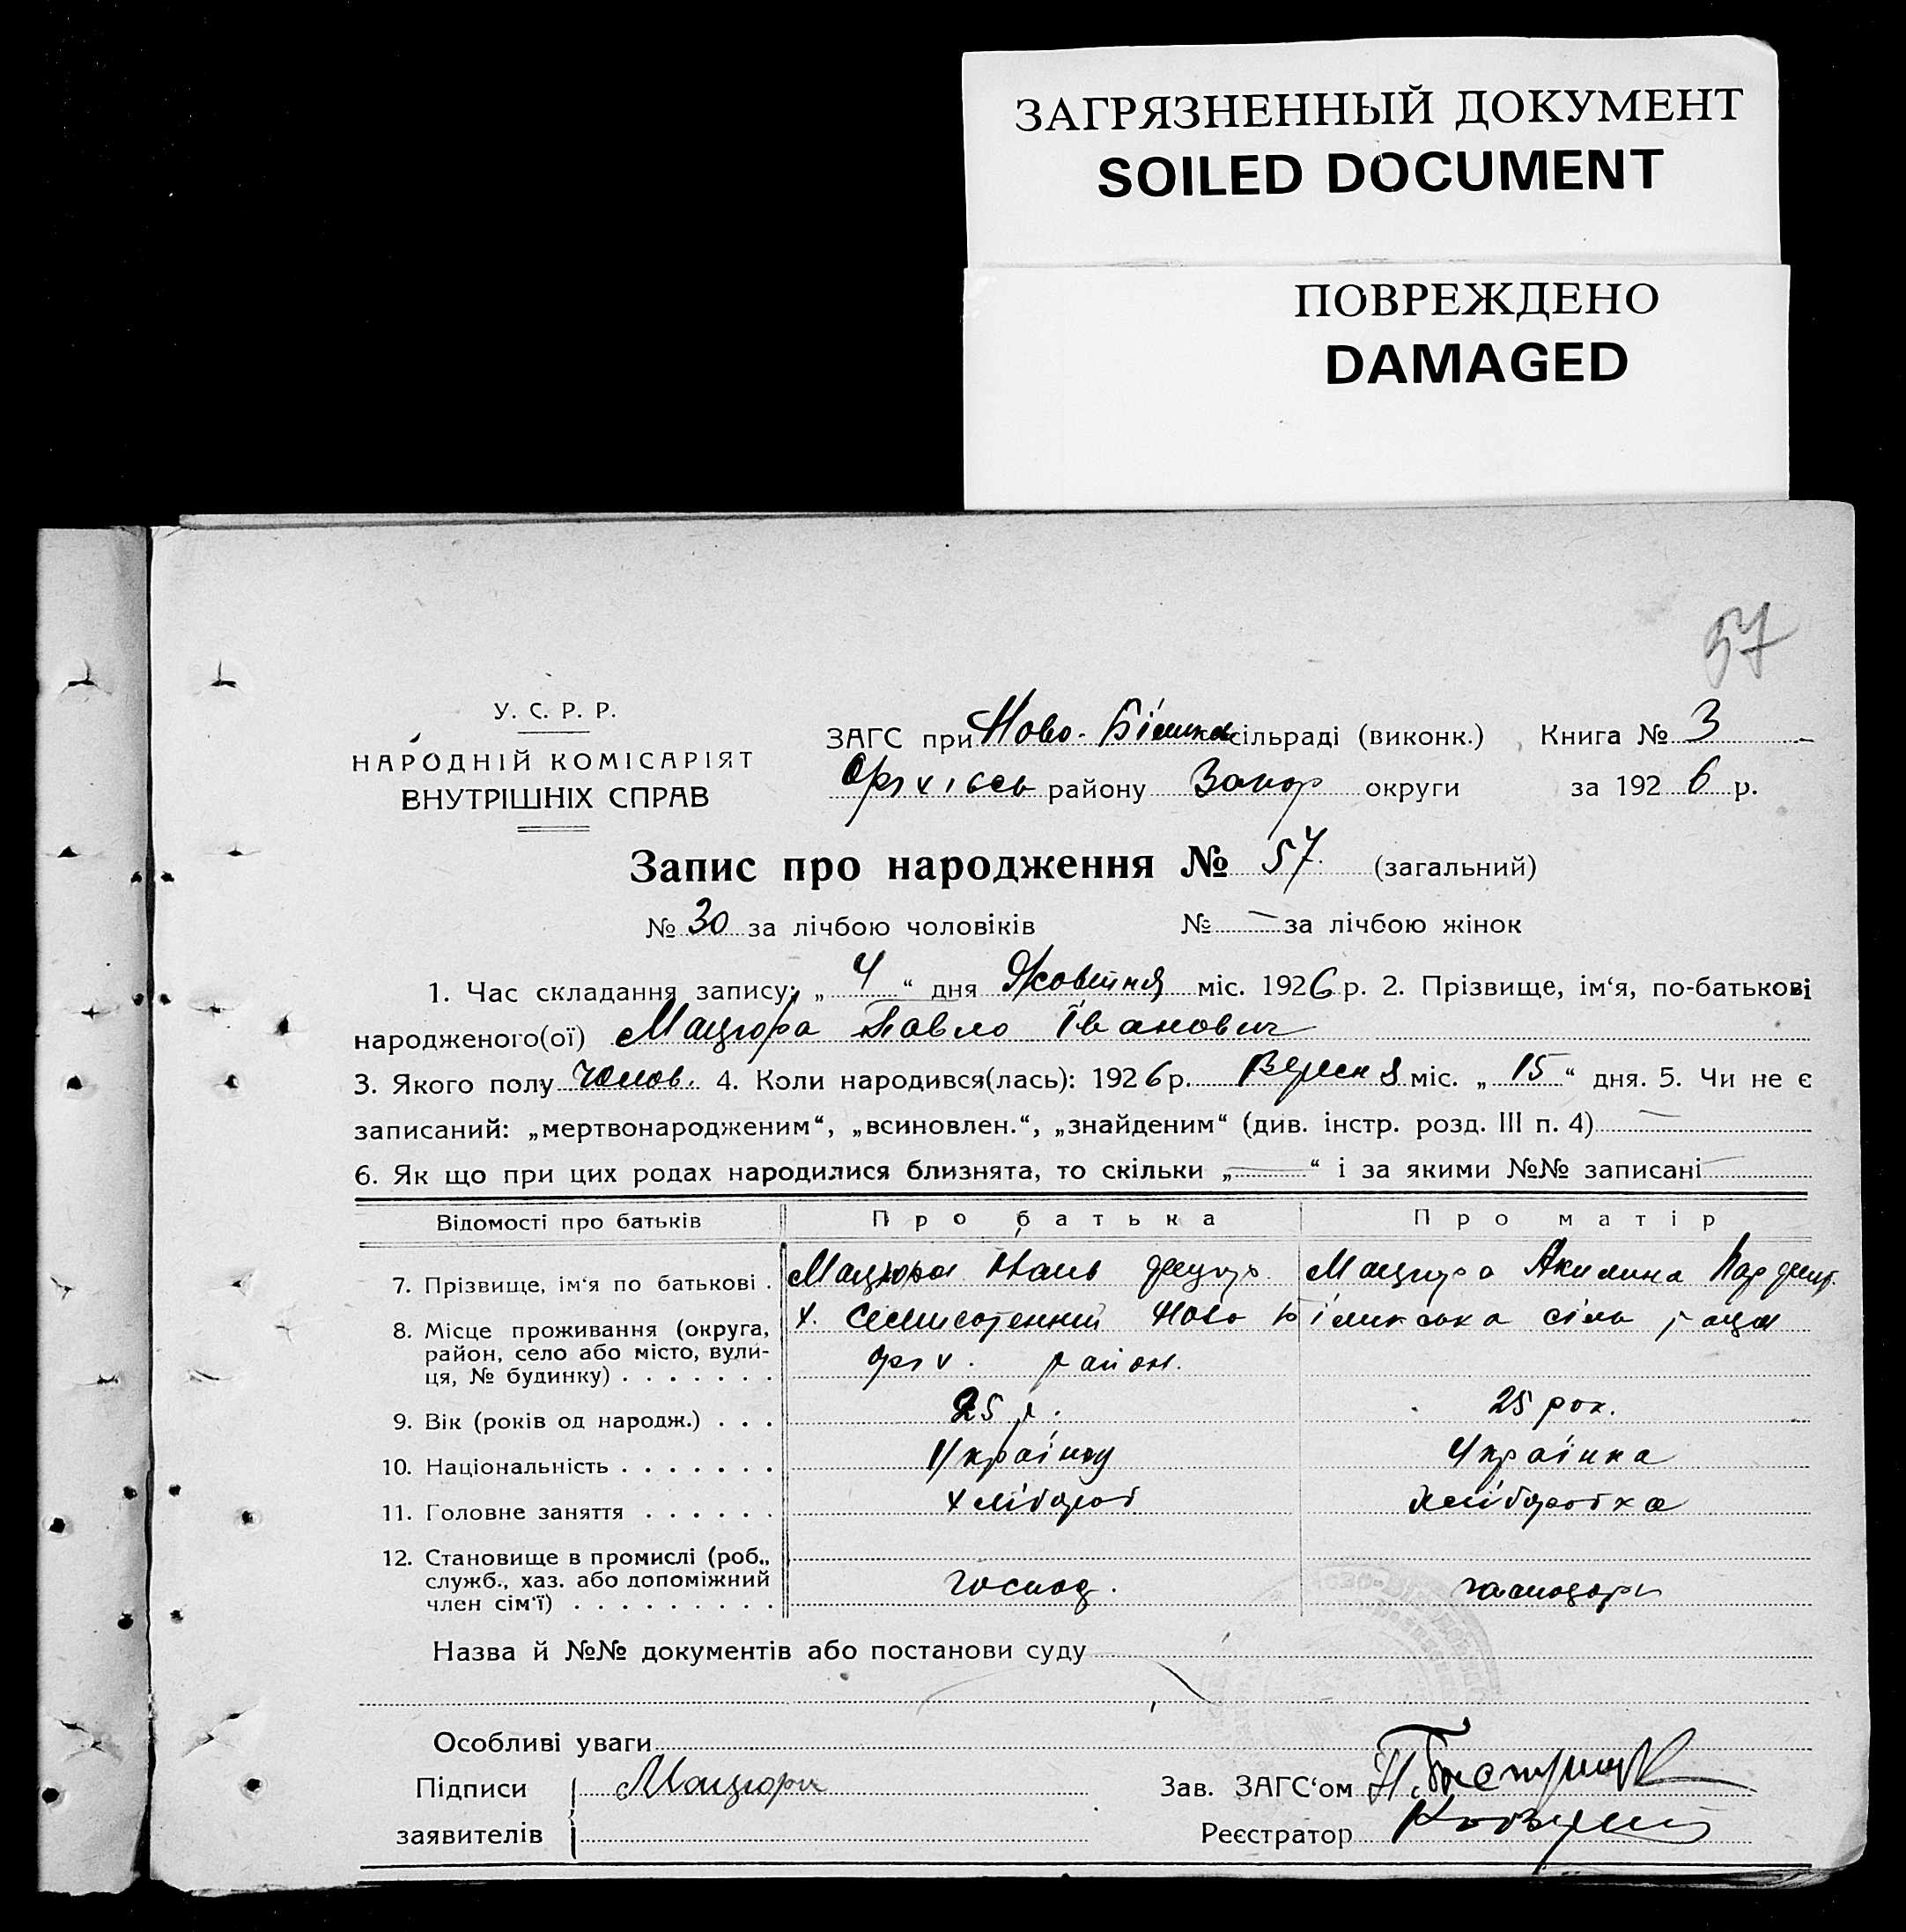 ЗАГРЯЗНЕННЫЙ ДОКУМЕНТ
SOILED DOCUMENT
ПОВРЕЖДЕНО
DAMAGED
57
У. С. Р. Р.
НАРОДНІЙ КОМІСАРІЯТ
ВНУТРІШНІХ СПРАВ
ЗАГС при Ново- сільраді (виконк.) Книга № 3
району Запор округи за 1926 р.
Запис про народження № 57. (загальний)
№ 30 за лічбою чоловіків № — за лічбою жінок
1. Час складання запису: „ 4 “ дня Жовтня міс. 1926 р. 2. Прізвище, ім‘я, по-батькові
народженого(ої) Мацюра Павло Іванович
3. Якого полу чолов. 4. Коли народився(лась): 1926 р. Вересня міс. „ 15 “ дня. 5. Чи не є
записаний: „мертвонародженим“, „всиновлен.“, „знайденим“ (див. інстр. розд. III п. 4) —
6. Як що при цих родах народилися близнята, то скільки „ — “ і за якими №№ записані —
Відомості про батьків Про батька Про матір
7. Прізвище, ім‘я по батькові . Мацюра Мацюра Акилина
8. Місце проживання (округа, район, село або місто, вулиця, № будинку) . . . . . . . х. Ново Більківська сіль рада
район.
9. Вік (років од народж.) . . . 25 р. 25 рок.
10. Національність . . . . . . . Українка
11. Головне заняття . . . . . . хлібороб хліборобка
12. Становище в промислі (роб., служб., хаз. або допоміжний член сім‘ї) . . . . . . . . . господ.
Назва й №№ документів або постанови суду
Особливі уваги
Підписи Мацюра Зав. ЗАГС‘ом
заявителів Реєстратор